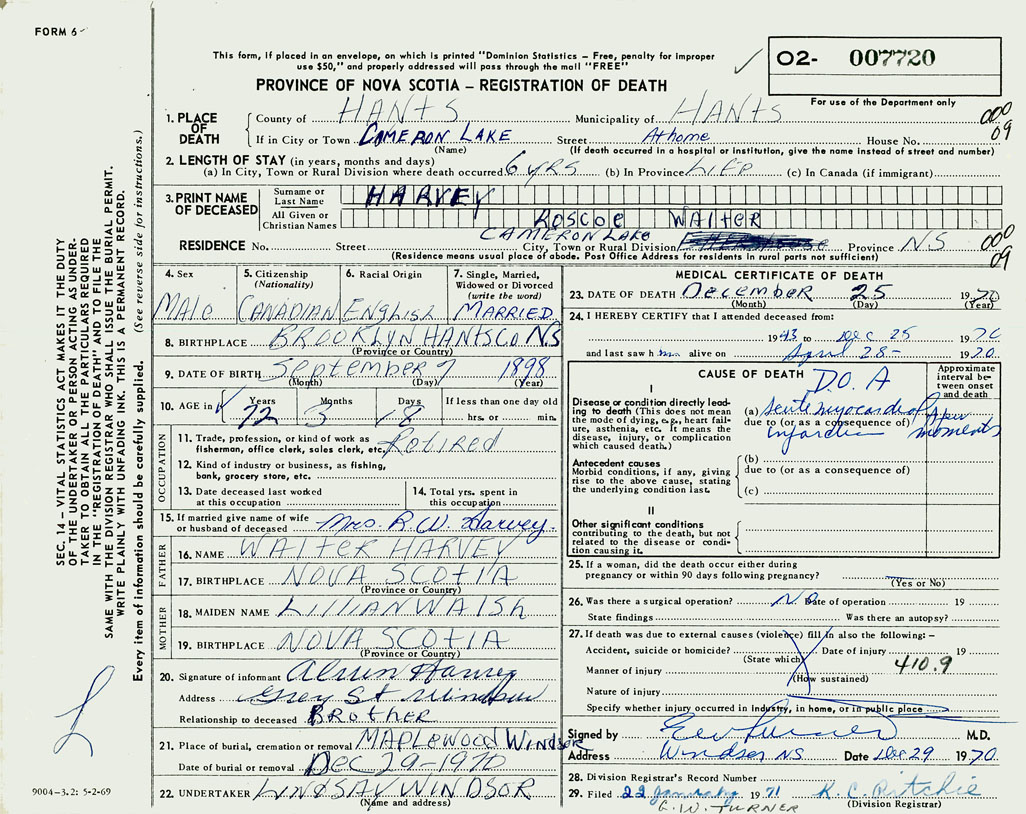 FORM 6
This form, if placed in an envelope, on which is printed "Dominion Statistics – Free, penalty for improper
use $50," and properly addressed will pass through the mail "FREE"
O2- 007720
PROVINCE OF NOVA SCOTIA – REGISTRATION OF DEATH
For use of the Department only
1. PLACE OF DEATH
County of HANTS Municipality of HANTS
000
09
If in City or Town CAMERON LAKE Street At home House No.
(Name) (If death occurred in a hospital or institution, give the name instead of street and number)
2. LENGTH OF STAY (in years, months and days)
(a) In City, Town or Rural Division where death occurred 6 yrs (b) In Province LIFE (c) In Canada (if immigrant)
3. PRINT NAME OF DECEASED
Surname or Last Name HARVEY
All Given or Christian Names ROSCOE WALTER
CAMERON LAKE
RESIDENCE No. Street City, Town or Rural Division Province N.S
000
09
(Residence means usual place of abode. Post Office Address for residents in rural parts not sufficient)
4. Sex MALE
5. Citizenship (Nationality) CANADIAN
6. Racial Origin ENGLISH
7. Single, Married, Widowed or Divorced (write the word) MARRIED
8. BIRTHPLACE BROOKLYN HANTS CO N.S
(Province or Country)
9. DATE OF BIRTH September 7 1898
(Month) (Day) (Year)
10. AGE in Years Months Days If less than one day old
72 3 18 hrs. or min.
OCCUPATION
11. Trade, profession, or kind of work as fisherman, office clerk, sales clerk, etc. Retired
12. Kind of industry or business, as fishing, bank, grocery store, etc.
13. Date deceased last worked at this occupation
14. Total yrs. spent in this occupation
15. If married give name of wife or husband of deceased Mrs. R. W. Harvey
FATHER
16. NAME WALTER HARVEY
17. BIRTHPLACE NOVA SCOTIA
(Province or Country)
MOTHER
18. MAIDEN NAME LILLIAN WALSH
19. BIRTHPLACE NOVA SCOTIA
(Province or Country)
20. Signature of informant Alvin Harvey
Address Grey St Windsor
Relationship to deceased BROTHER
21. Place of burial, cremation or removal MAPLEWOOD WINDSOR
Date of burial or removal DEC 29-1970
22. UNDERTAKER LINDSAY WINDSOR
(Name and address)
MEDICAL CERTIFICATE OF DEATH
23. DATE OF DEATH December 25 1970
(Month) (Day) (Year)
24. I HEREBY CERTIFY that I attended deceased from:
1943 to Dec 25 1970
and last saw h im alive on April 28- 1970
CAUSE OF DEATH D.O.A
Approximate interval between onset and death
I
Disease or condition directly leading to death (This does not mean the mode of dying, e.g., heart failure, asthenia, etc. It means the disease, injury, or complication which caused death.)
(a) acute myocardial
due to (or as a consequence of)
infarction
A few
moments
Antecedent causes
Morbid conditions, if any, giving rise to the above cause, stating the underlying condition last.
(b)
due to (or as a consequence of)
(c)
II
Other significant conditions
contributing to the death, but not related to the disease or condition causing it.
25. If a woman, did the death occur either during pregnancy or within 90 days following pregnancy?
(Yes or No)
26. Was there a surgical operation? No Date of operation 19
State findings Was there an autopsy?
27. If death was due to external causes (violence) fill in also the following:–
Accident, suicide or homicide? Date of injury 19
(State which)
410.9
Manner of injury
(How sustained)
Nature of injury
Specify whether injury occurred in industry, in home, or in public place
Signed by E W Turner M.D.
Address Windsor NS Date Dec 29 1970
28. Division Registrar's Record Number
29. Filed 22 January 1971 K. C. Ritchie
(Division Registrar)
E.W. TURNER
SEC. 14 – VITAL STATISTICS ACT MAKES IT THE DUTY
OF THE UNDERTAKER OR PERSON ACTING AS UNDERTAKER
TO OBTAIN ALL THE PARTICULARS REQUIRED
IN THE "REGISTRATION OF DEATH" AND TO FILE THE
SAME WITH THE DIVISION REGISTRAR WHO SHALL ISSUE THE BURIAL PERMIT.
WRITE PLAINLY WITH UNFADING INK. THIS IS A PERMANENT RECORD.
Every item of information should be carefully supplied. (See reverse side for instructions.)
9004-3.2: 5-2-69